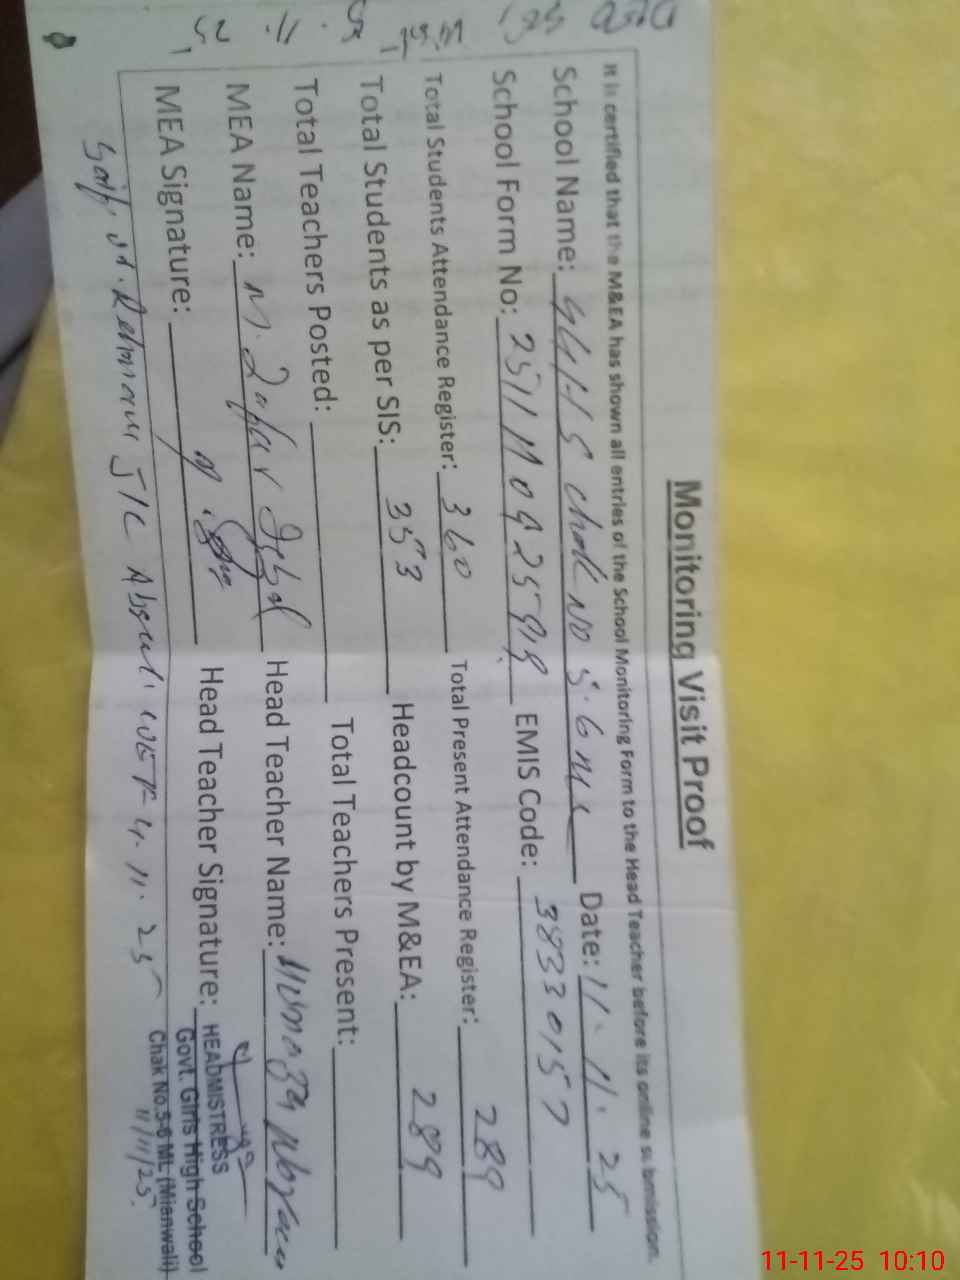 Monitoring Visit Proof
It is certified that the M&EA has shown all entries of the School Monitoring Form to the Head Teacher before its online submission.
School Name: GGHS Chak No 5.6 ML Date: 11.11.25
School Form No: EMIS Code: 38330157
Total Students Attendance Register: 360 Total Present Attendance Register: 289
Total Students as per SIS: 353 Headcount by M&EA: 289
Total Teachers Posted: Total Teachers Present:
MEA Name: M. Zafar Iqbal Head Teacher Name:
MEA Signature: Head Teacher Signature:
HEADMISTRESS
Govt. Girls High School
Chak No.5-6 ML (Mianwali)
11/11/25.
Rehman J/C Absent W.E.F 4.11.25
11-11-25 10:10